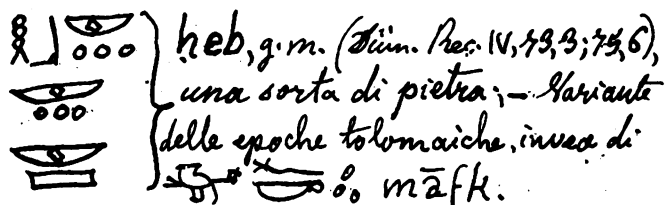 ḥeb, g. m. (Düm. Rec. IV,
una sorta di pietra; – Variante
delle epoche tolomaiche, invece di
māfk.